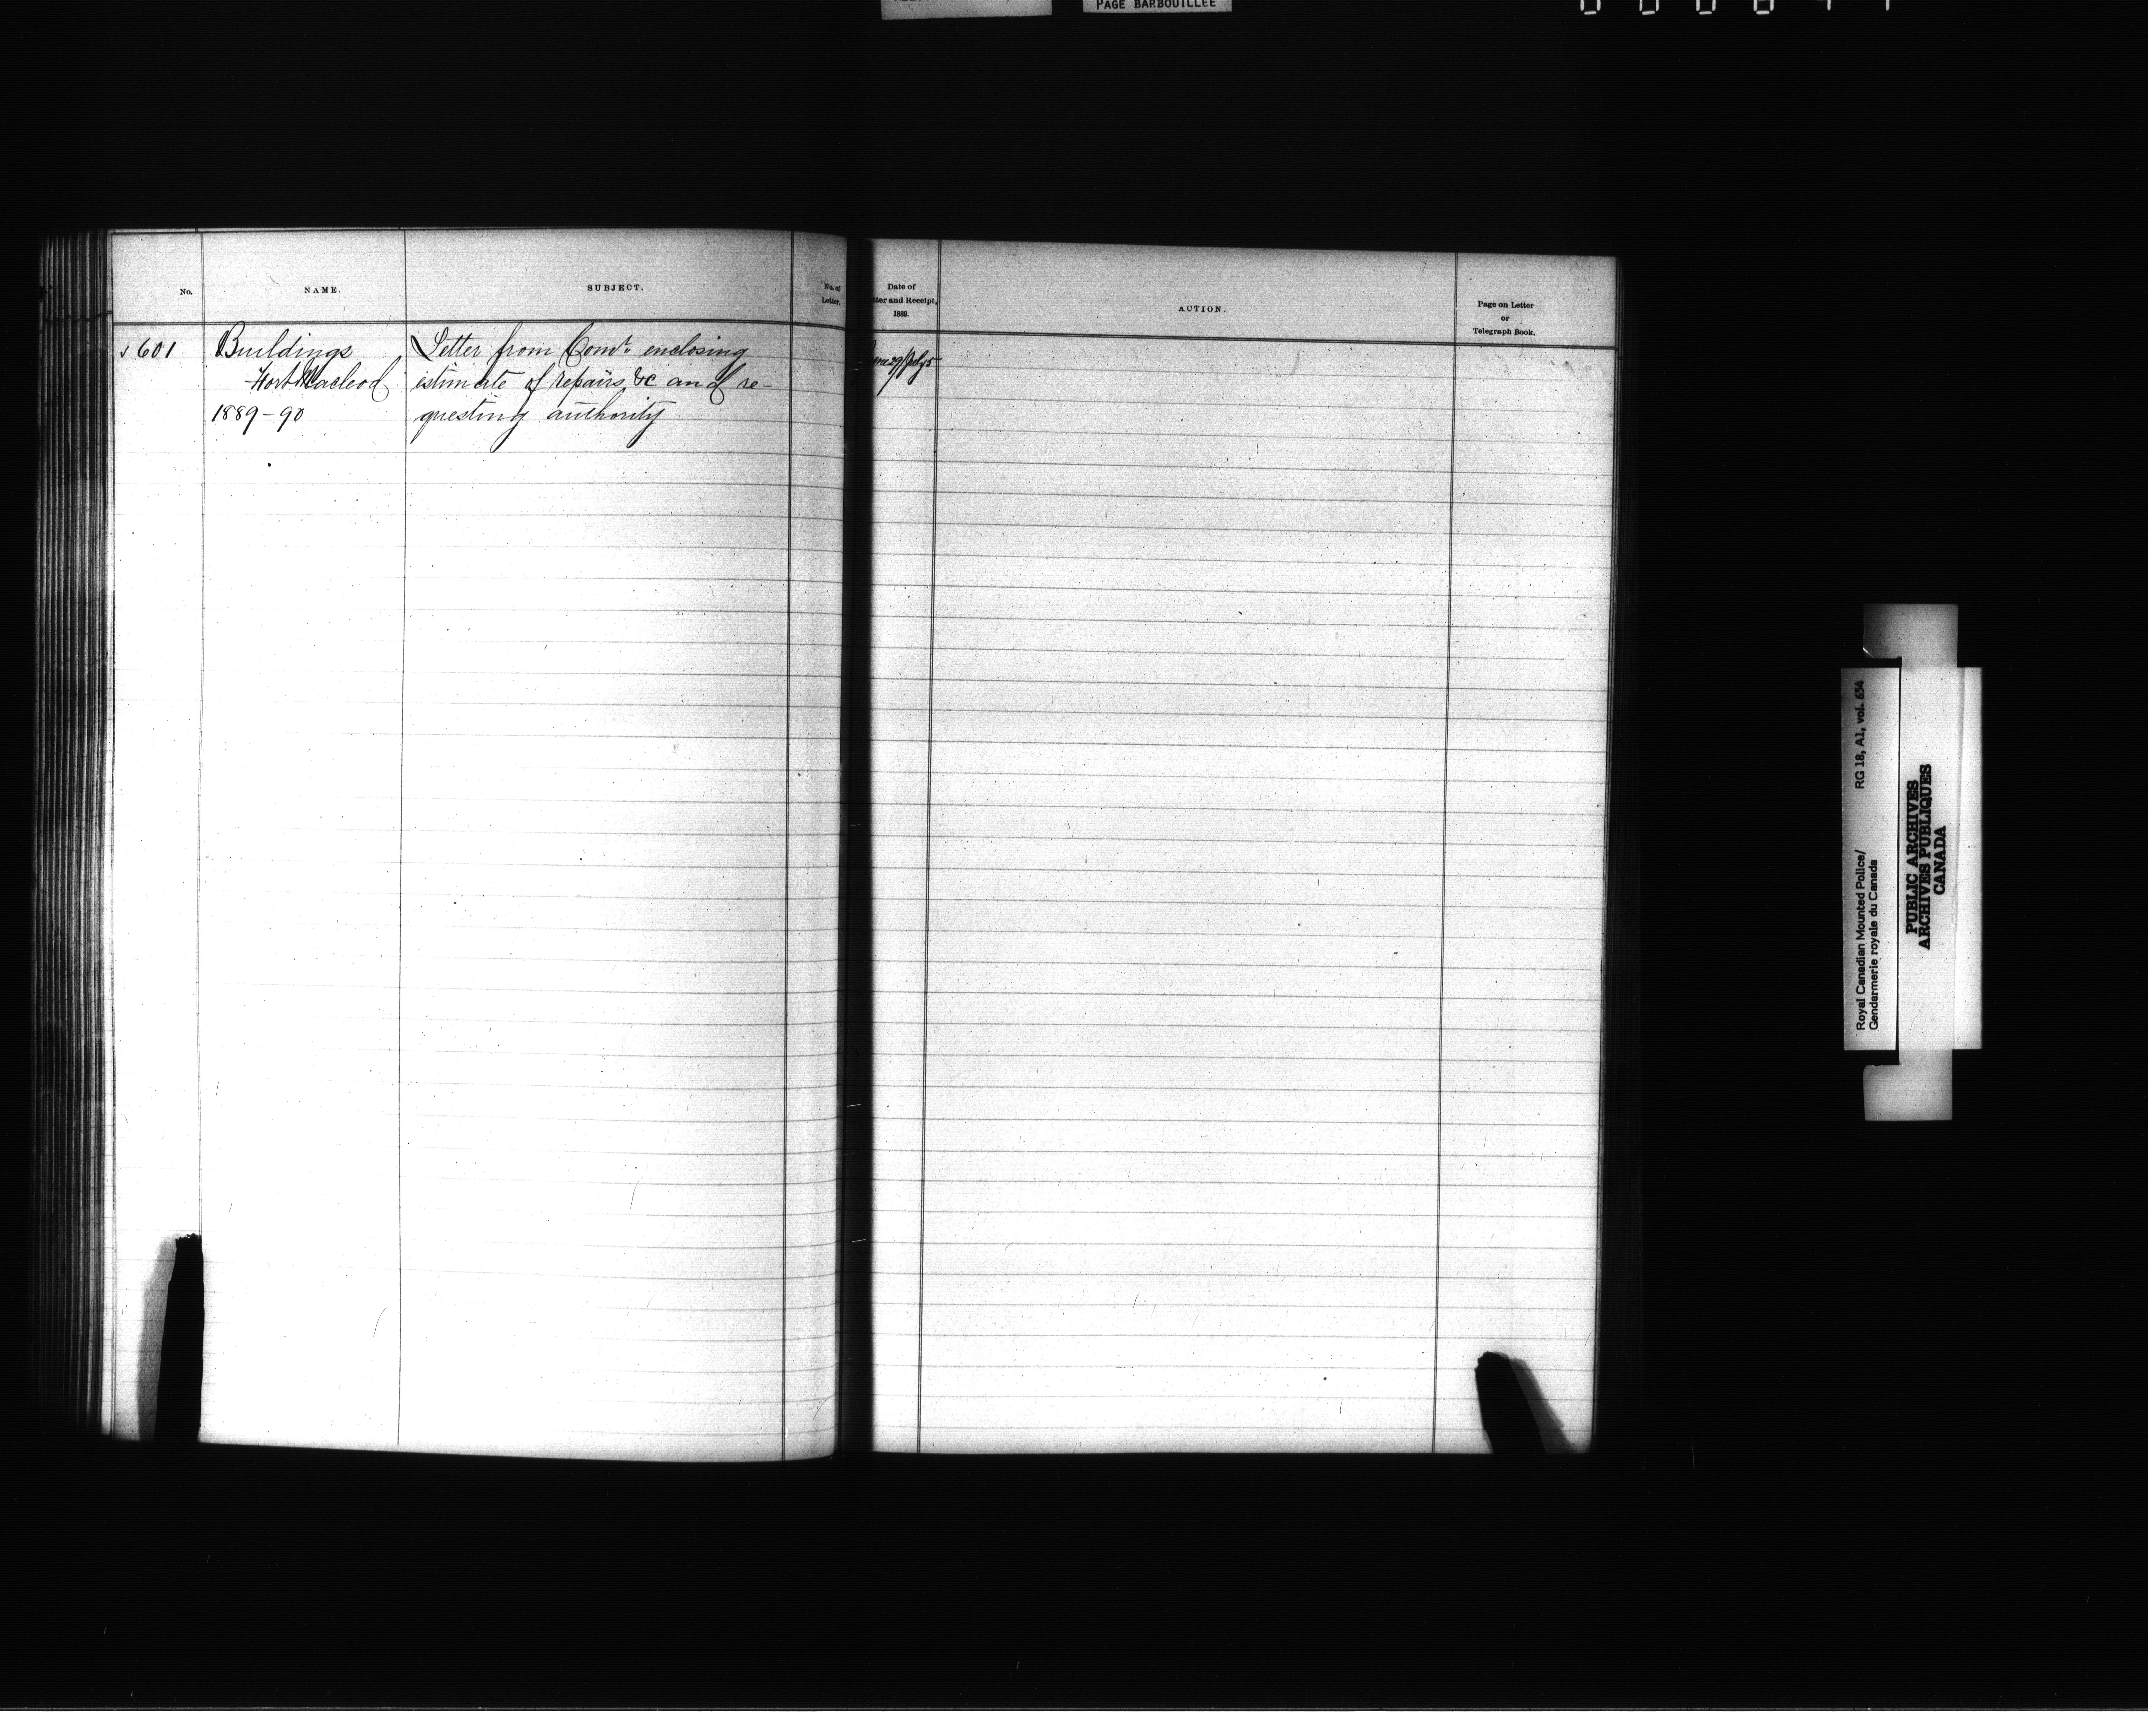 PAGE BARBOUILLEE
No.
NAME.
SUBJECT.
No. of
Letter.
Date of
tter and Receipt,
1889.
ACTION.
Page on Letter
or
Telegraph Book.
601
Buildings
Fort Macleod
1889-90
Letter from Comr. enclosing
estimate of repairs &c and re-
questing authority
une 29/July 5
Royal Canadian Mounted Police/
Gendarmerie royale du Canada
RG 18, A1, vol. 654
PUBLIC ARCHIVES
ARCHIVES PUBLIQUES
CANADA